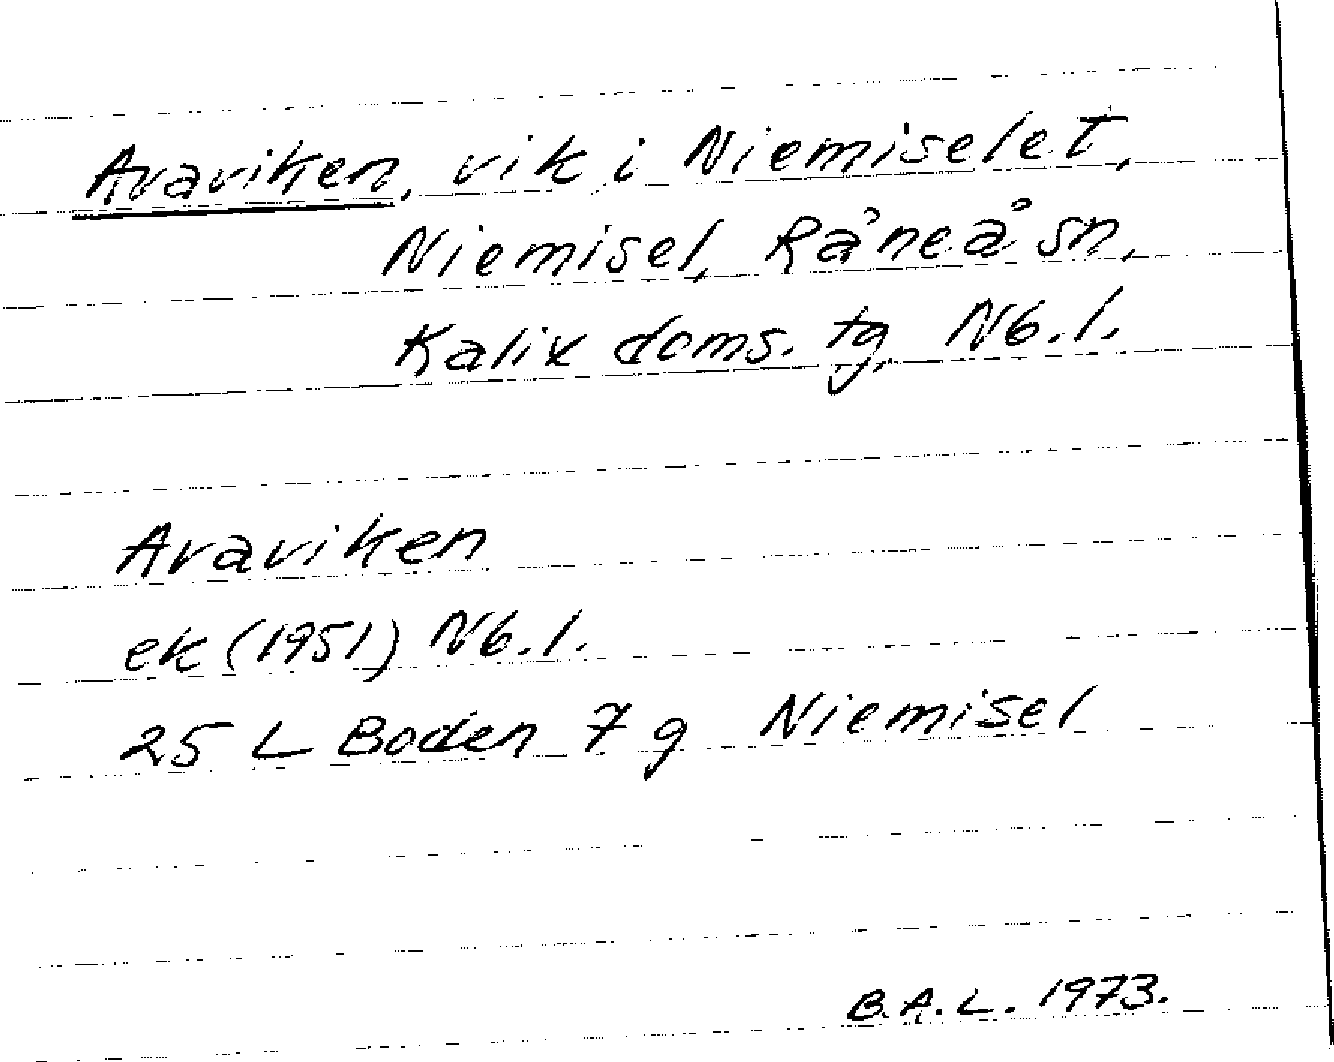 Araviken, vik i Niemiselet,
Niemisel, Råneå sn,
Kalix doms. tg, Nb. l.
Araviken
ek (1951) Nb. l.
25 L Boden 7 g Niemisel
B.A.L. 1973.